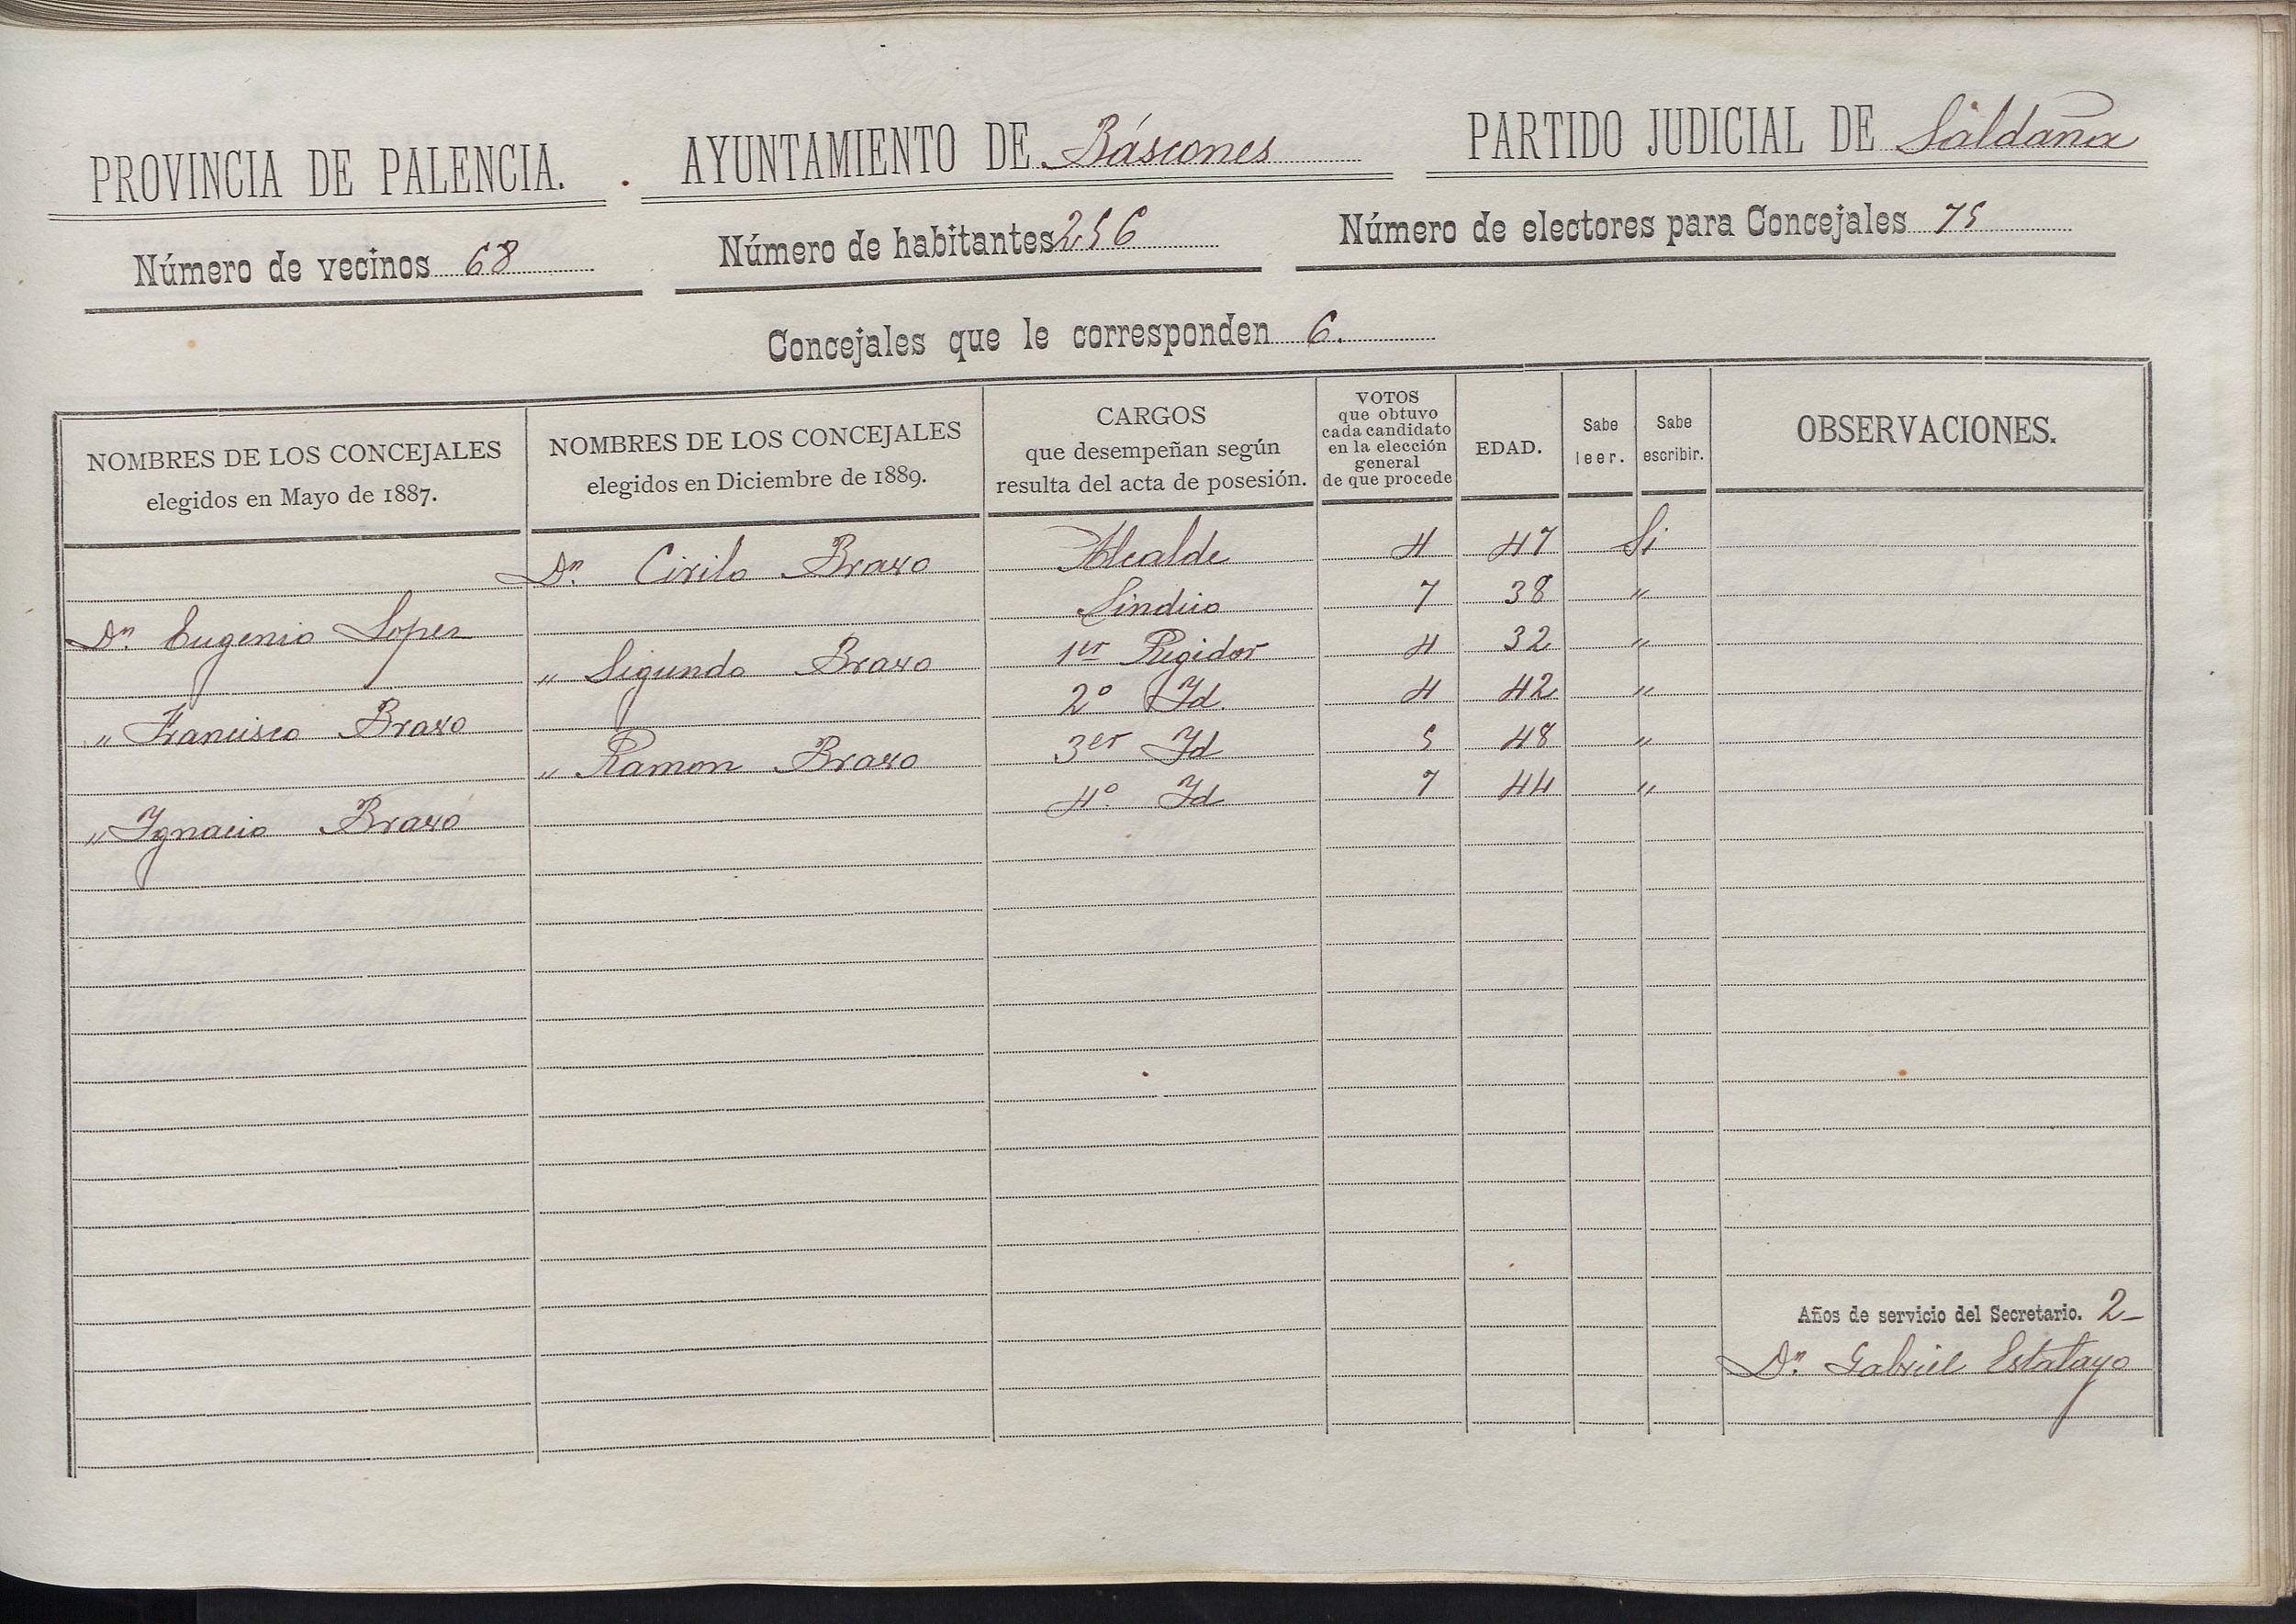 PROVINCIA DE PALENCIA. AYUNTAMIENTO DE Báscones PARTIDO JUDICIAL DE Saldaña
Número de vecinos 68 Número de habitantes 256 Número de electores para Concejales 75
Concejales que le corresponden 6.
NOMBRES DE LOS CONCEJALES elegidos en Mayo de 1887. NOMBRES DE LOS CONCEJALES elegidos en Diciembre de 1889. CARGOS que desempeñan según resulta del acta de posesión. VOTOS que obtuvo cada candidato en la elección general de que procede EDAD. Sabe leer. Sabe escribir. OBSERVACIONES.
Dn. Cirilo Bravo Alcalde 4 47 Si
Dn. Eugenio Lopez Sindico 7 38 "
" Sigundo Bravo 1er Rigidor 4 32 "
" Francisco Bravo 2º Id. 4 42 "
" Ramon Bravo 3er Id 5 48 "
" Ygnacio Bravo 4º Id 7 44 "
Años de servicio del Secretario. 2-
Dn. Gabriel Estalayo